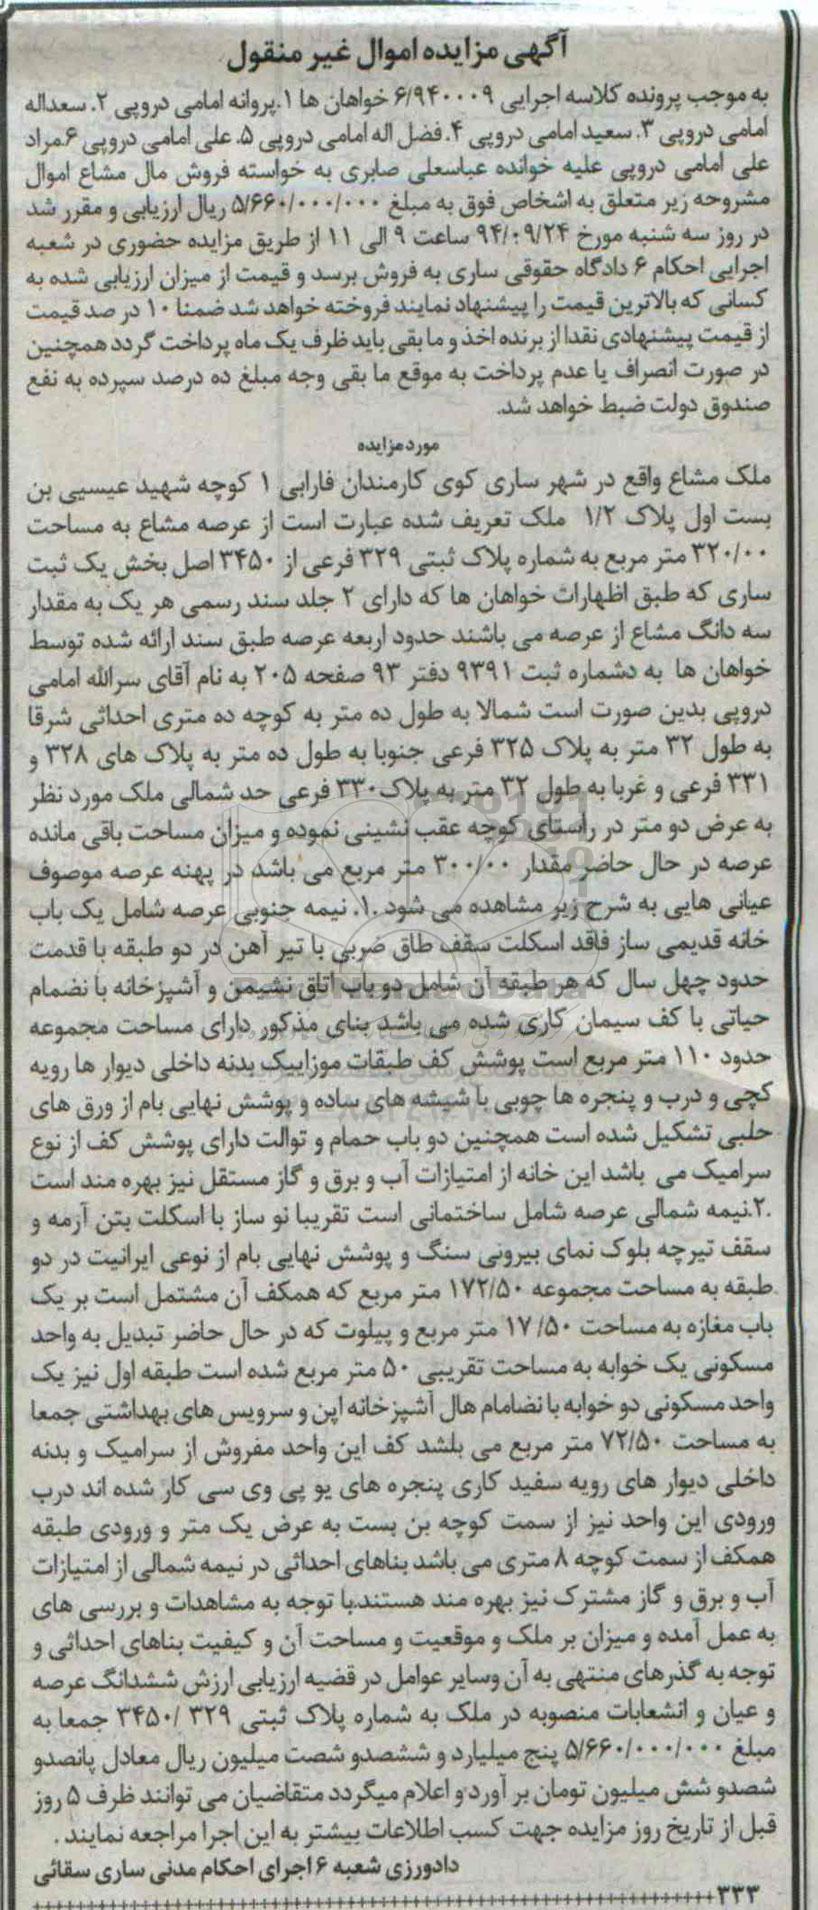 آگهی مزایده اموال غیر منقول
به موجب پرونده کلاسه اجرایی ۶/۹۴۰۰۰۹ خواهان ها ۱.پروانه امامی دروپی ۲. سعداله
امامی دروپی ۳. سعید امامی دروپی ۴. فضل اله امامی دروپی ۵. علی امامی دروپی ۶.مراد
علی امامی دروپی علیه خوانده عباسعلی صابری به خواسته فروش مال مشاع اموال
مشروحه زیر متعلق به اشخاص فوق به مبلغ ۵/۶۶۰/۰۰۰/۰۰۰ ریال ارزیابی و مقرر شد
در روز سه شنبه مورخ ۹۴/۰۹/۲۴ ساعت ۹ الی ۱۱ از طریق مزایده حضوری در شعبه
اجرایی احکام ۶ دادگاه حقوقی ساری به فروش برسد و قیمت از میزان ارزیابی شده به
کسانی که بالاترین قیمت را پیشنهاد نمایند فروخته خواهد شد ضمنا ۱۰ در صد قیمت
از قیمت پیشنهادی نقدا از برنده اخذ و ما بقی باید ظرف یک ماه پرداخت گردد همچنین
در صورت انصراف یا عدم پرداخت به موقع ما بقی وجه مبلغ ده درصد سپرده به نفع
صندوق دولت ضبط خواهد شد.
مورد مزایده
ملک مشاع واقع در شهر ساری کوی کارمندان فارابی ۱ کوچه شهید عیسیی بن
بست اول پلاک ۱/۲ ملک تعریف شده عبارت است از عرصه مشاع به مساحت
۳۲۰/۰۰ متر مربع به شماره پلاک ثبتی ۳۲۹ فرعی از ۳۴۵۰ اصل بخش یک ثبت
ساری که طبق اظهارات خواهان ها که دارای ۲ جلد سند رسمی هر یک به مقدار
سه دانگ مشاع از عرصه می باشند حدود اربعه عرصه طبق سند ارائه شده توسط
خواهان ها به دشماره ثبت ۹۳۹۱ دفتر ۹۳ صفحه ۲۰۵ به نام آقای سرالله امامی
دروپی بدین صورت است شمالا به طول ده متر به کوچه ده متری احداثی شرقا
به طول ۳۲ متر به پلاک ۳۲۵ فرعی جنوبا به طول ده متر به پلاک های ۳۲۸ و
۳۳۱ فرعی و غربا به طول ۳۲ متر به پلاک ۳۳۰ فرعی حد شمالی ملک مورد نظر
به عرض دو متر در راستای کوچه عقب نشینی نموده و میزان مساحت باقی مانده
عرصه در حال حاضر مقدار ۳۰۰/۰۰ متر مربع می باشد در پهنه عرصه موصوف
عیانی هایی به شرح زیر مشاهده می شود .۱. نیمه جنوبی عرصه شامل یک باب
خانه قدیمی ساز فاقد اسکلت سقف طاق ضربی با تیر آهن در دو طبقه با قدمت
حدود چهل سال که هر طبقه آن شامل دو باب اتاق نشیمن و آشپزخانه با نضمام
حیاتی با کف سیمان کاری شده می باشد بنای مذکور دارای مساحت مجموعه
حدود ۱۱۰ متر مربع است پوشش کف طبقات موزاییک بدنه داخلی دیوار ها رویه
کچی و درب و پنجره ها چوبی با شیشه های ساده و پوشش نهایی بام از ورق های
حلبی تشکیل شده است همچنین دو باب حمام و توالت دارای پوشش کف از نوع
سرامیک می باشد این خانه از امتیازات آب و برق و گاز مستقل نیز بهره مند است
.۲.نیمه شمالی عرصه شامل ساختمانی است تقریبا نو ساز با اسکلت بتن آرمه و
سقف تیرچه بلوک نمای بیرونی سنگ و پوشش نهایی بام از نوعی ایرانیت در دو
طبقه به مساحت مجموعه ۱۷۲/۵۰ متر مربع که همکف آن مشتمل است بر یک
باب مغازه به مساحت ۱۷/۵۰ متر مربع و پیلوت که در حال حاضر تبدیل به واحد
مسکونی یک خوابه به مساحت تقریبی ۵۰ متر مربع شده است طبقه اول نیز یک
واحد مسکونی دو خوابه با نضامام هال آشپزخانه اپن و سرویس های بهداشتی جمعا
به مساحت ۷۲/۵۰ متر مربع می بلشد کف این واحد مفروش از سرامیک و بدنه
داخلی دیوار های رویه سفید کاری پنجره های یو پی وی سی کار شده اند درب
ورودی این واحد نیز از سمت کوچه بن بست به عرض یک متر و ورودی طبقه
همکف از سمت کوچه ۸ متری می باشد بناهای احداثی در نیمه شمالی از امتیازات
آب و برق و گاز مشترک نیز بهره مند هستند.با توجه به مشاهدات و بررسی های
به عمل آمده و میزان بر ملک و موقعیت و مساحت آن و کیفیت بناهای احداثی و
توجه به گذرهای منتهی به آن وسایر عوامل در قضیه ارزیابی ارزش ششدانگ عرصه
و عیان و انشعابات منصوبه در ملک به شماره پلاک ثبتی ۳۲۹ /۳۴۵۰ جمعا به
مبلغ ۵/۶۶۰/۰۰۰/۰۰۰ پنج میلیارد و ششصدو شصت میلیون ریال معادل پانصدو
شصدو شش میلیون تومان بر آورد و اعلام میگردد متقاضیان می توانند ظرف ۵ روز
قبل از تاریخ روز مزایده جهت کسب اطلاعات بیشتر به این اجرا مراجعه نمایند .
دادورزی شعبه ۶ اجرای احکام مدنی ساری سقائی
۳۳۳